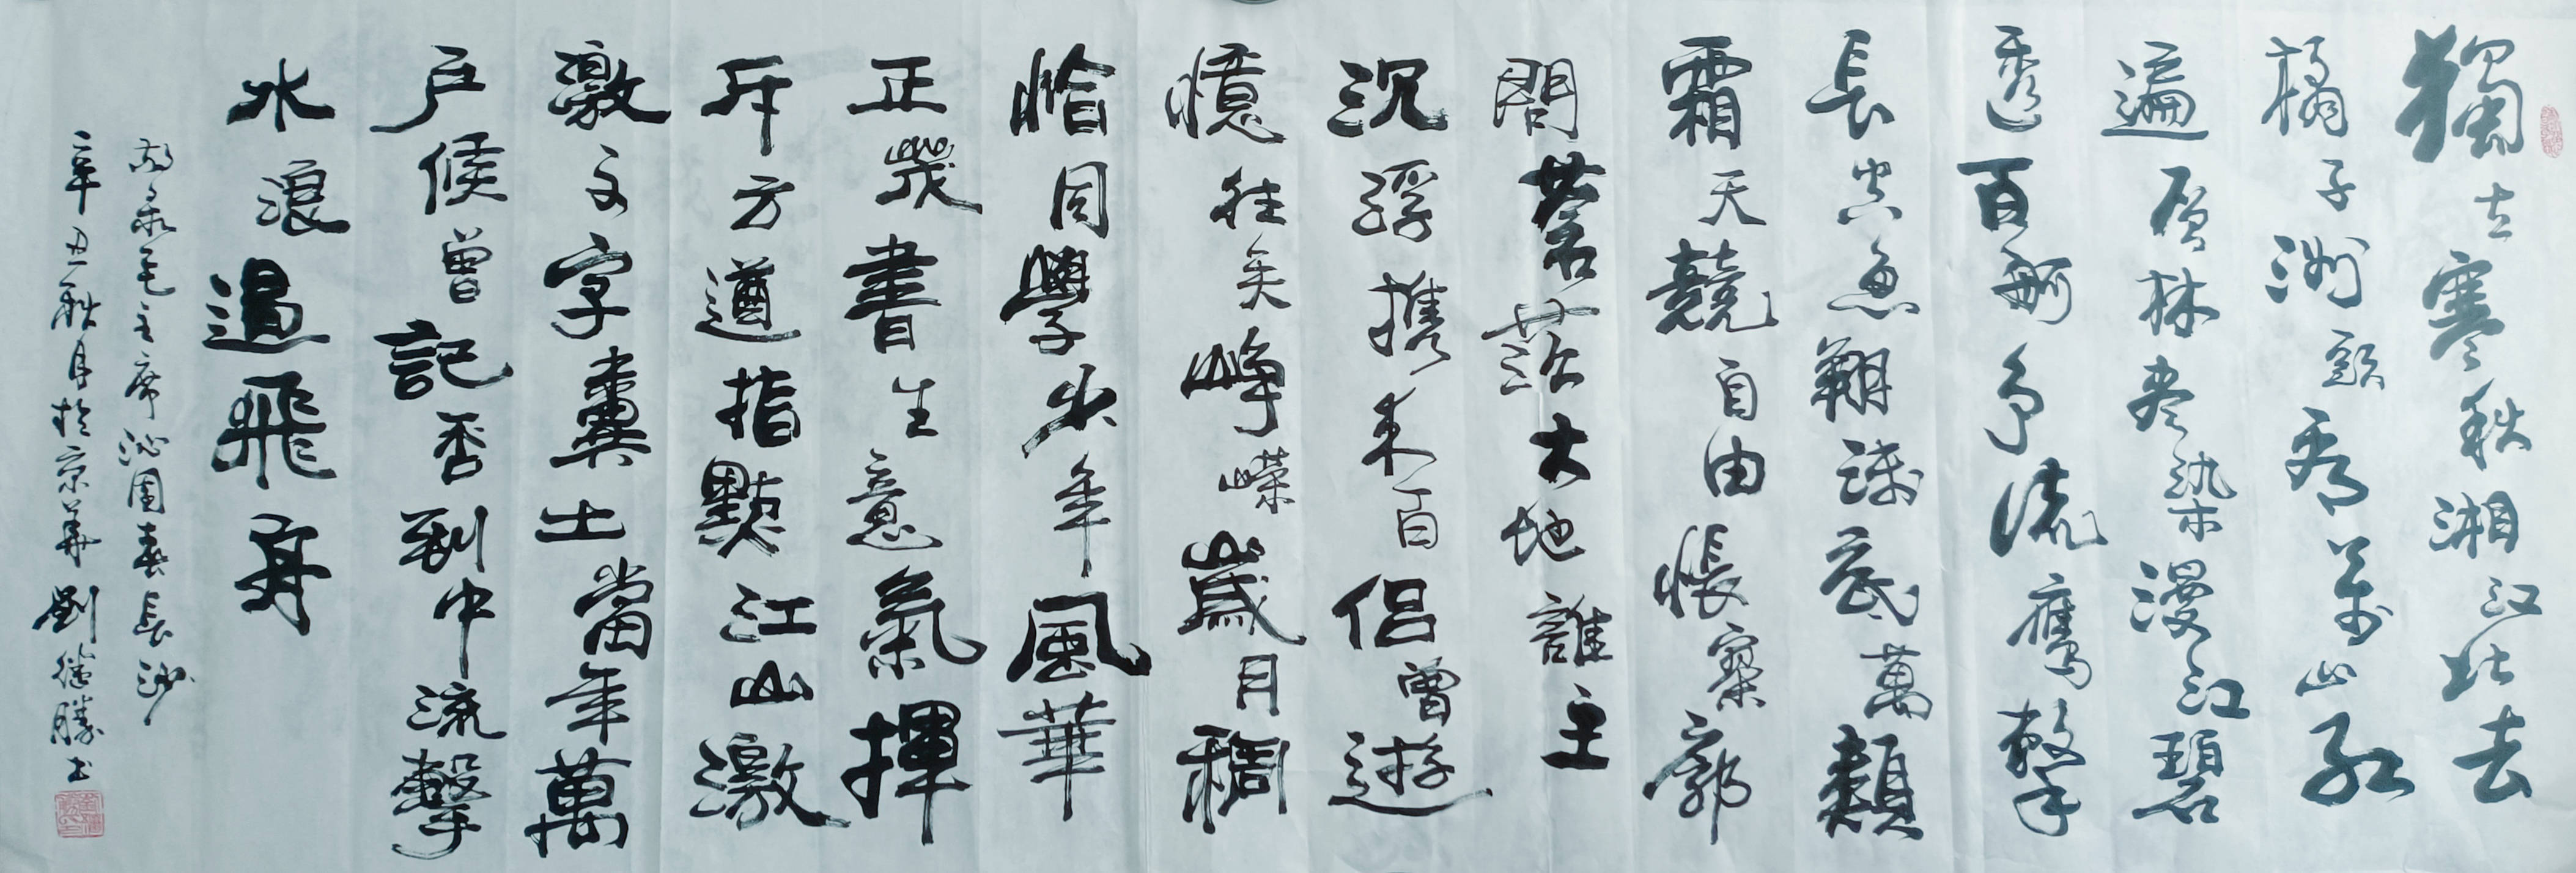 獨立寒秋湘江北去
橘子洲頭看萬山紅
遍層林盡染漫江碧
透百舸爭流鷹擊
長空魚翔淺底萬類
霜天競自由悵寥廓
問蒼茫大地誰主
沉浮携来百侣曾遊
憶往矣崢嶸歲月稠
恰同學少年風華
正茂書生意氣揮
斥方遒指點江山激
激文字糞土當年萬
戶侯曾記否到中流擊
水浪遏飛舟
敬录毛主席沁園春長沙
辛丑秋月於京華劉德勝书